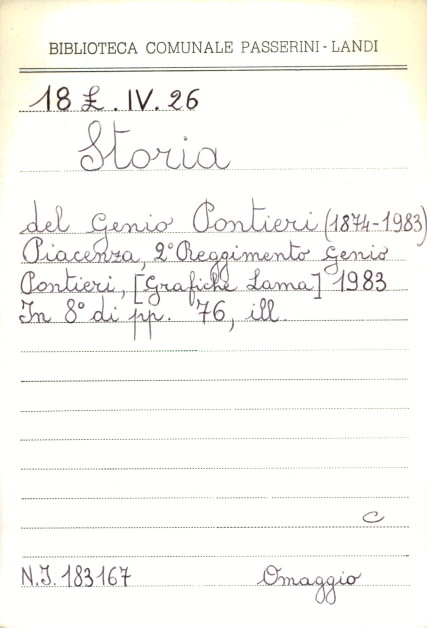 BIBLIOTECA COMUNALE PASSERINI - LANDI
18 £. IV. 26
Storia
del Genio Pontieri (1874-1983)
Piacenza, 2° Reggimento Genio
Pontieri, [Grafiche Lama] 1983
In 8° di pp. 76, ill.
C
N.I. 183167 Omaggio